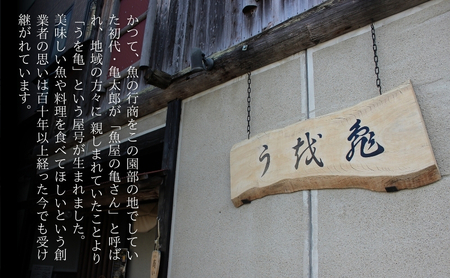 かつて、魚の行商をこの園部の地でしてい
た初代・亀太郎が「魚屋の亀さん」と呼ば
れ、地域の方々に親しまれていたことより
「うを亀」という屋号が生まれました。
美味しい魚や料理を食べてほしいという創
業者の思いは百十年以上経った今でも受け
継がれています。
う越亀